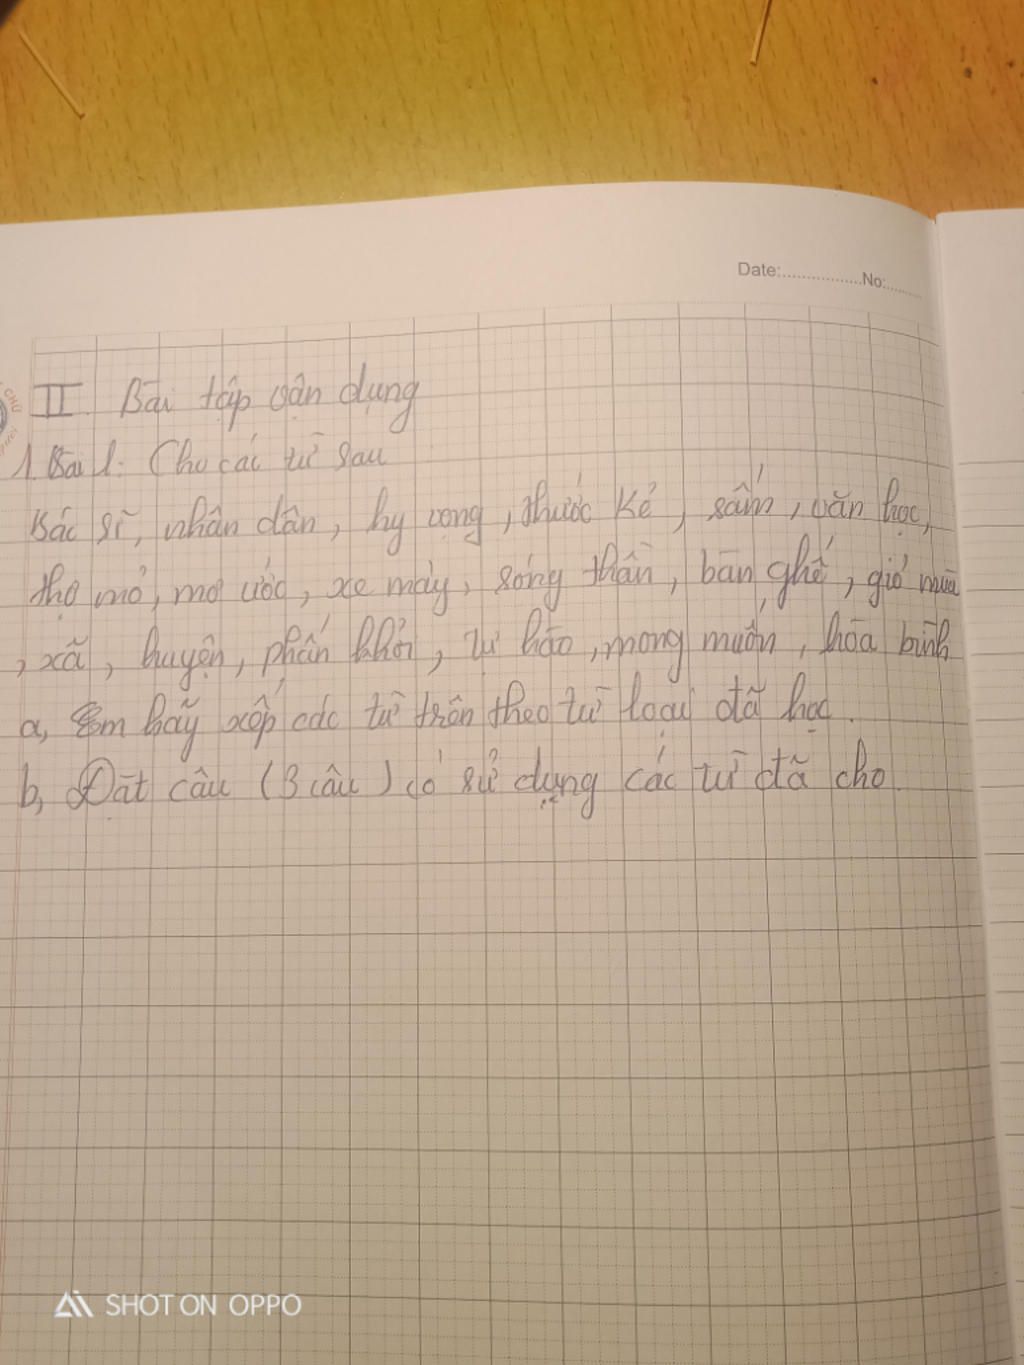 Date:..................No:........
II. Bài tập vận dụng
1. Bài 1: Cho các từ sau
Bác sĩ, nhân dân, hy vọng, thước kẻ, sấm, văn học,
thợ mỏ, mơ ước, xe máy, sóng thần, bàn ghế, gió mùa
, xã, huyện, phấn khởi, tự hào, mong muốn, hòa bình
a, Em hãy xếp các từ trên theo từ loại đã học.
b, Đặt câu (3 câu) có sử dụng các từ đã cho.
SHOT ON OPPO